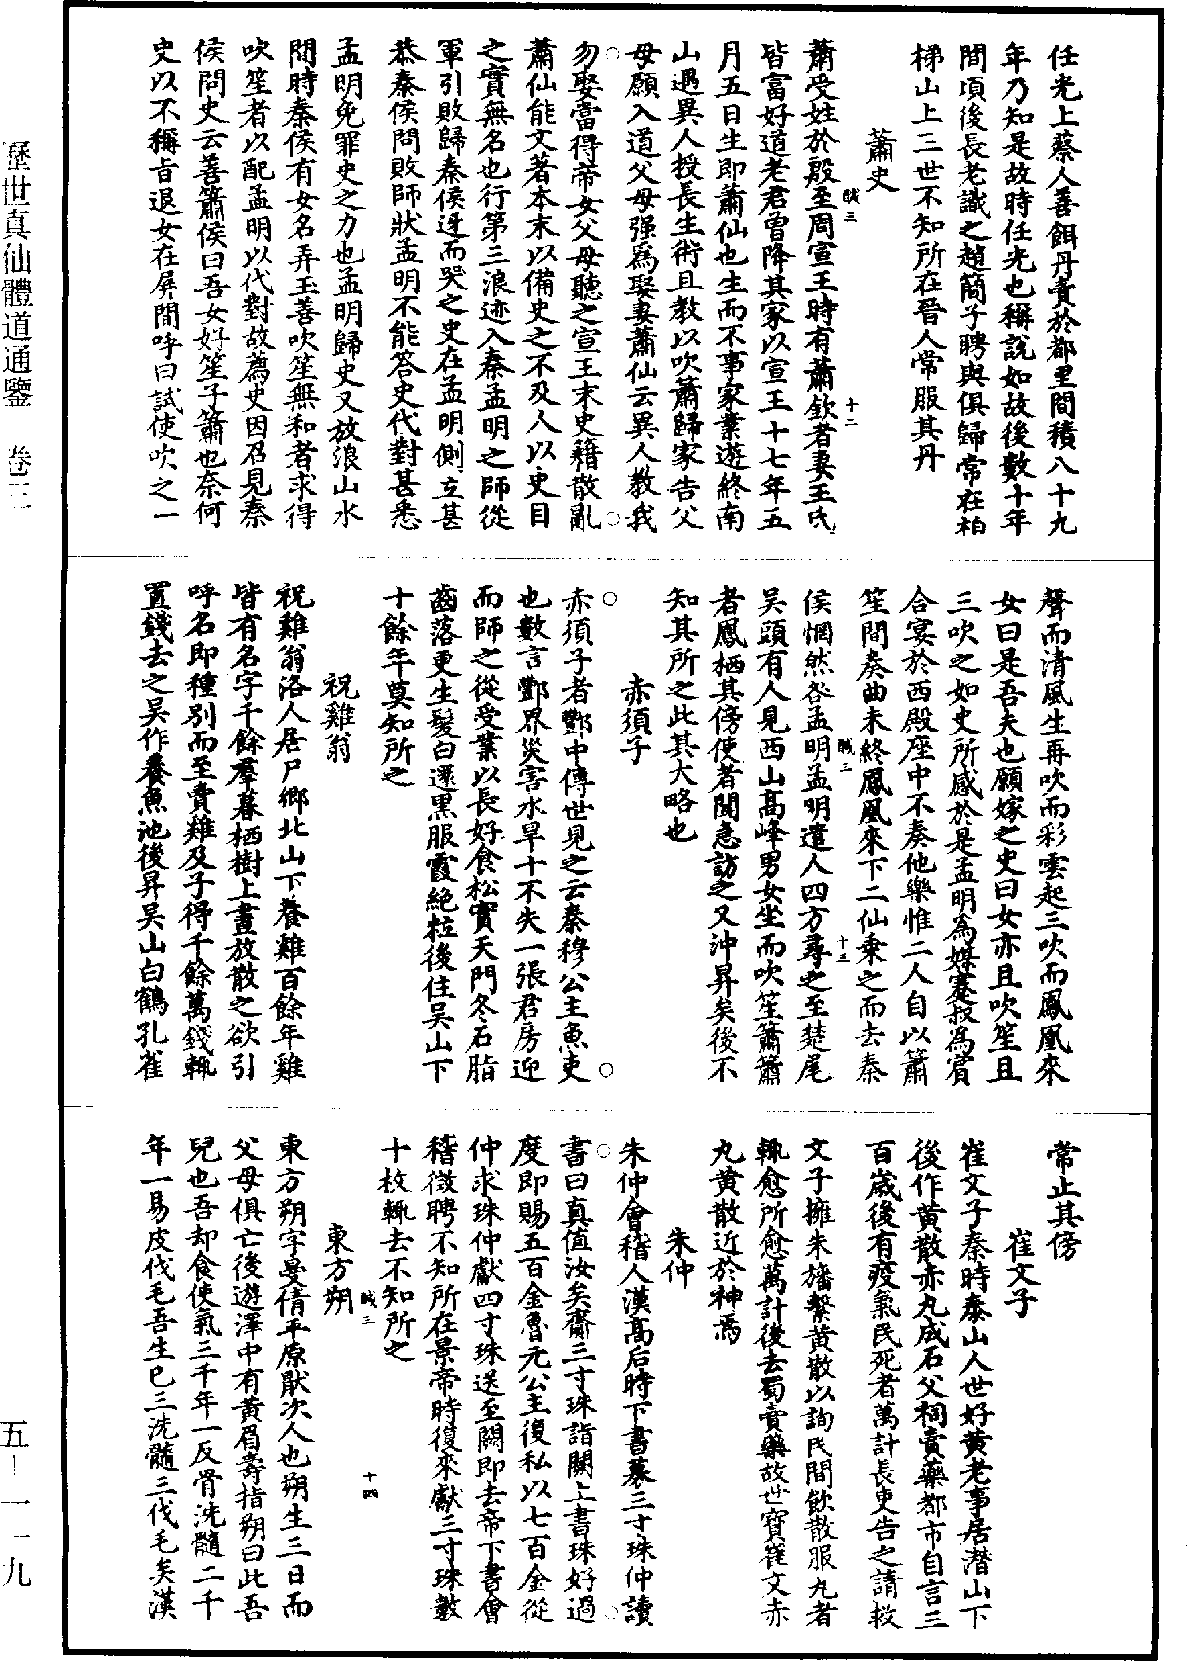 歷世真仙體道通鑒 卷三
任光上蔡人善餌丹賣於都里間積八十九
年乃知是故時任光也稱說如故後數十年
間頃後長老識之趙簡子聘與俱歸常在柏
梯山上三世不知所在晉人常服其丹
蕭史
蕭受姓於殷至周宣王時有蕭欽者妻王氏
皆富好道老君曾降其家以宣王十七年五
月五日生即蕭仙也生而不事家業遊終南
山遇異人授長生術且教以吹蕭歸家告父
母願入道父母强為娶妻蕭仙云異人教我
勿娶當得帝女父母聽之宣王末史籍散亂
蕭仙能文著本末以備史之不及人以史目
之實無名也行第三浪迹入秦孟明之師從
軍引敗歸秦侯迓而哭之史在孟明側立甚
恭秦侯問敗師狀孟明不能答史代對甚悉
孟明免罪史之力也孟明歸史又放浪山水
間時秦侯有女名弄玉善吹笙無和者求得
吹笙者以配孟明以代對故薦史因召見秦
侯問史云善簫侯曰吾女好笙子簫也奈何
史以不稱旨退女在屏間呼曰試使吹之一
聲而清風生再吹而彩雲起三吹而鳳凰來
女曰是吾夫也願嫁之史曰女亦且吹笙且
三吹之如史所感於是孟明為媒蹇叔為賓
合宴於西殿座中不奏他樂惟二人自以簫
笙間奏曲未終鳳凰來下二仙乘之而去秦
侯惘然咎孟明孟明遣人四方尋之至楚尾
吳頭有人見西山高峰男女坐而吹笙簫簫
者鳳栖其傍使者聞急訪之又沖昇矣後不
知其所之此其大略也
赤須子
赤須子者酆中傳世見之云秦穆公主魚吏
也數言酆界災害水旱十不失一張君房迎
而師之從受業以長好食松實天門冬石脂
齒落更生髮白還黑服霞絕粒後住吳山下
十餘年莫知所之
祝雞翁
祝雞翁洛人居尸鄉北山下養雞百餘年雞
皆有名字千餘羣暮栖樹上晝放散之欲引
呼名即種別而至賣雞及子得千餘萬錢輒
置錢去之吳作養魚池後昇吳山白鶴孔雀
常止其傍
崔文子
崔文子秦時泰山人世好黃老事居潛山下
後作黃散赤丸成石父祠賣藥都市自言三
百歲後有疫氣民死者萬計長吏告之請救
文子擁朱旛繫黃散以詢民間飲散服丸者
輒愈所愈萬計後去蜀賣藥故世寶崔文赤
丸黃散近於神焉
朱仲
朱仲會稽人漢高后時下書募三寸珠仲讀
書曰真值汝矣齎三寸珠詣闕上書珠好過
度即賜五百金魯元公主復私以七百金從
仲求珠仲獻四寸珠送至闕即去帝下書會
稽徵聘不知所在景帝時復來獻三寸珠數
十枚輒去不知所之
東方朔
東方朔字曼倩平原厭次人也朔生三日而
父母俱亡後遊澤中有黃眉壽指朔曰此吾
兒也吾却食使氣三千年一反骨洗髓二千
年一易皮伐毛吾生已三洗髓三伐毛矣漢
五—二一九